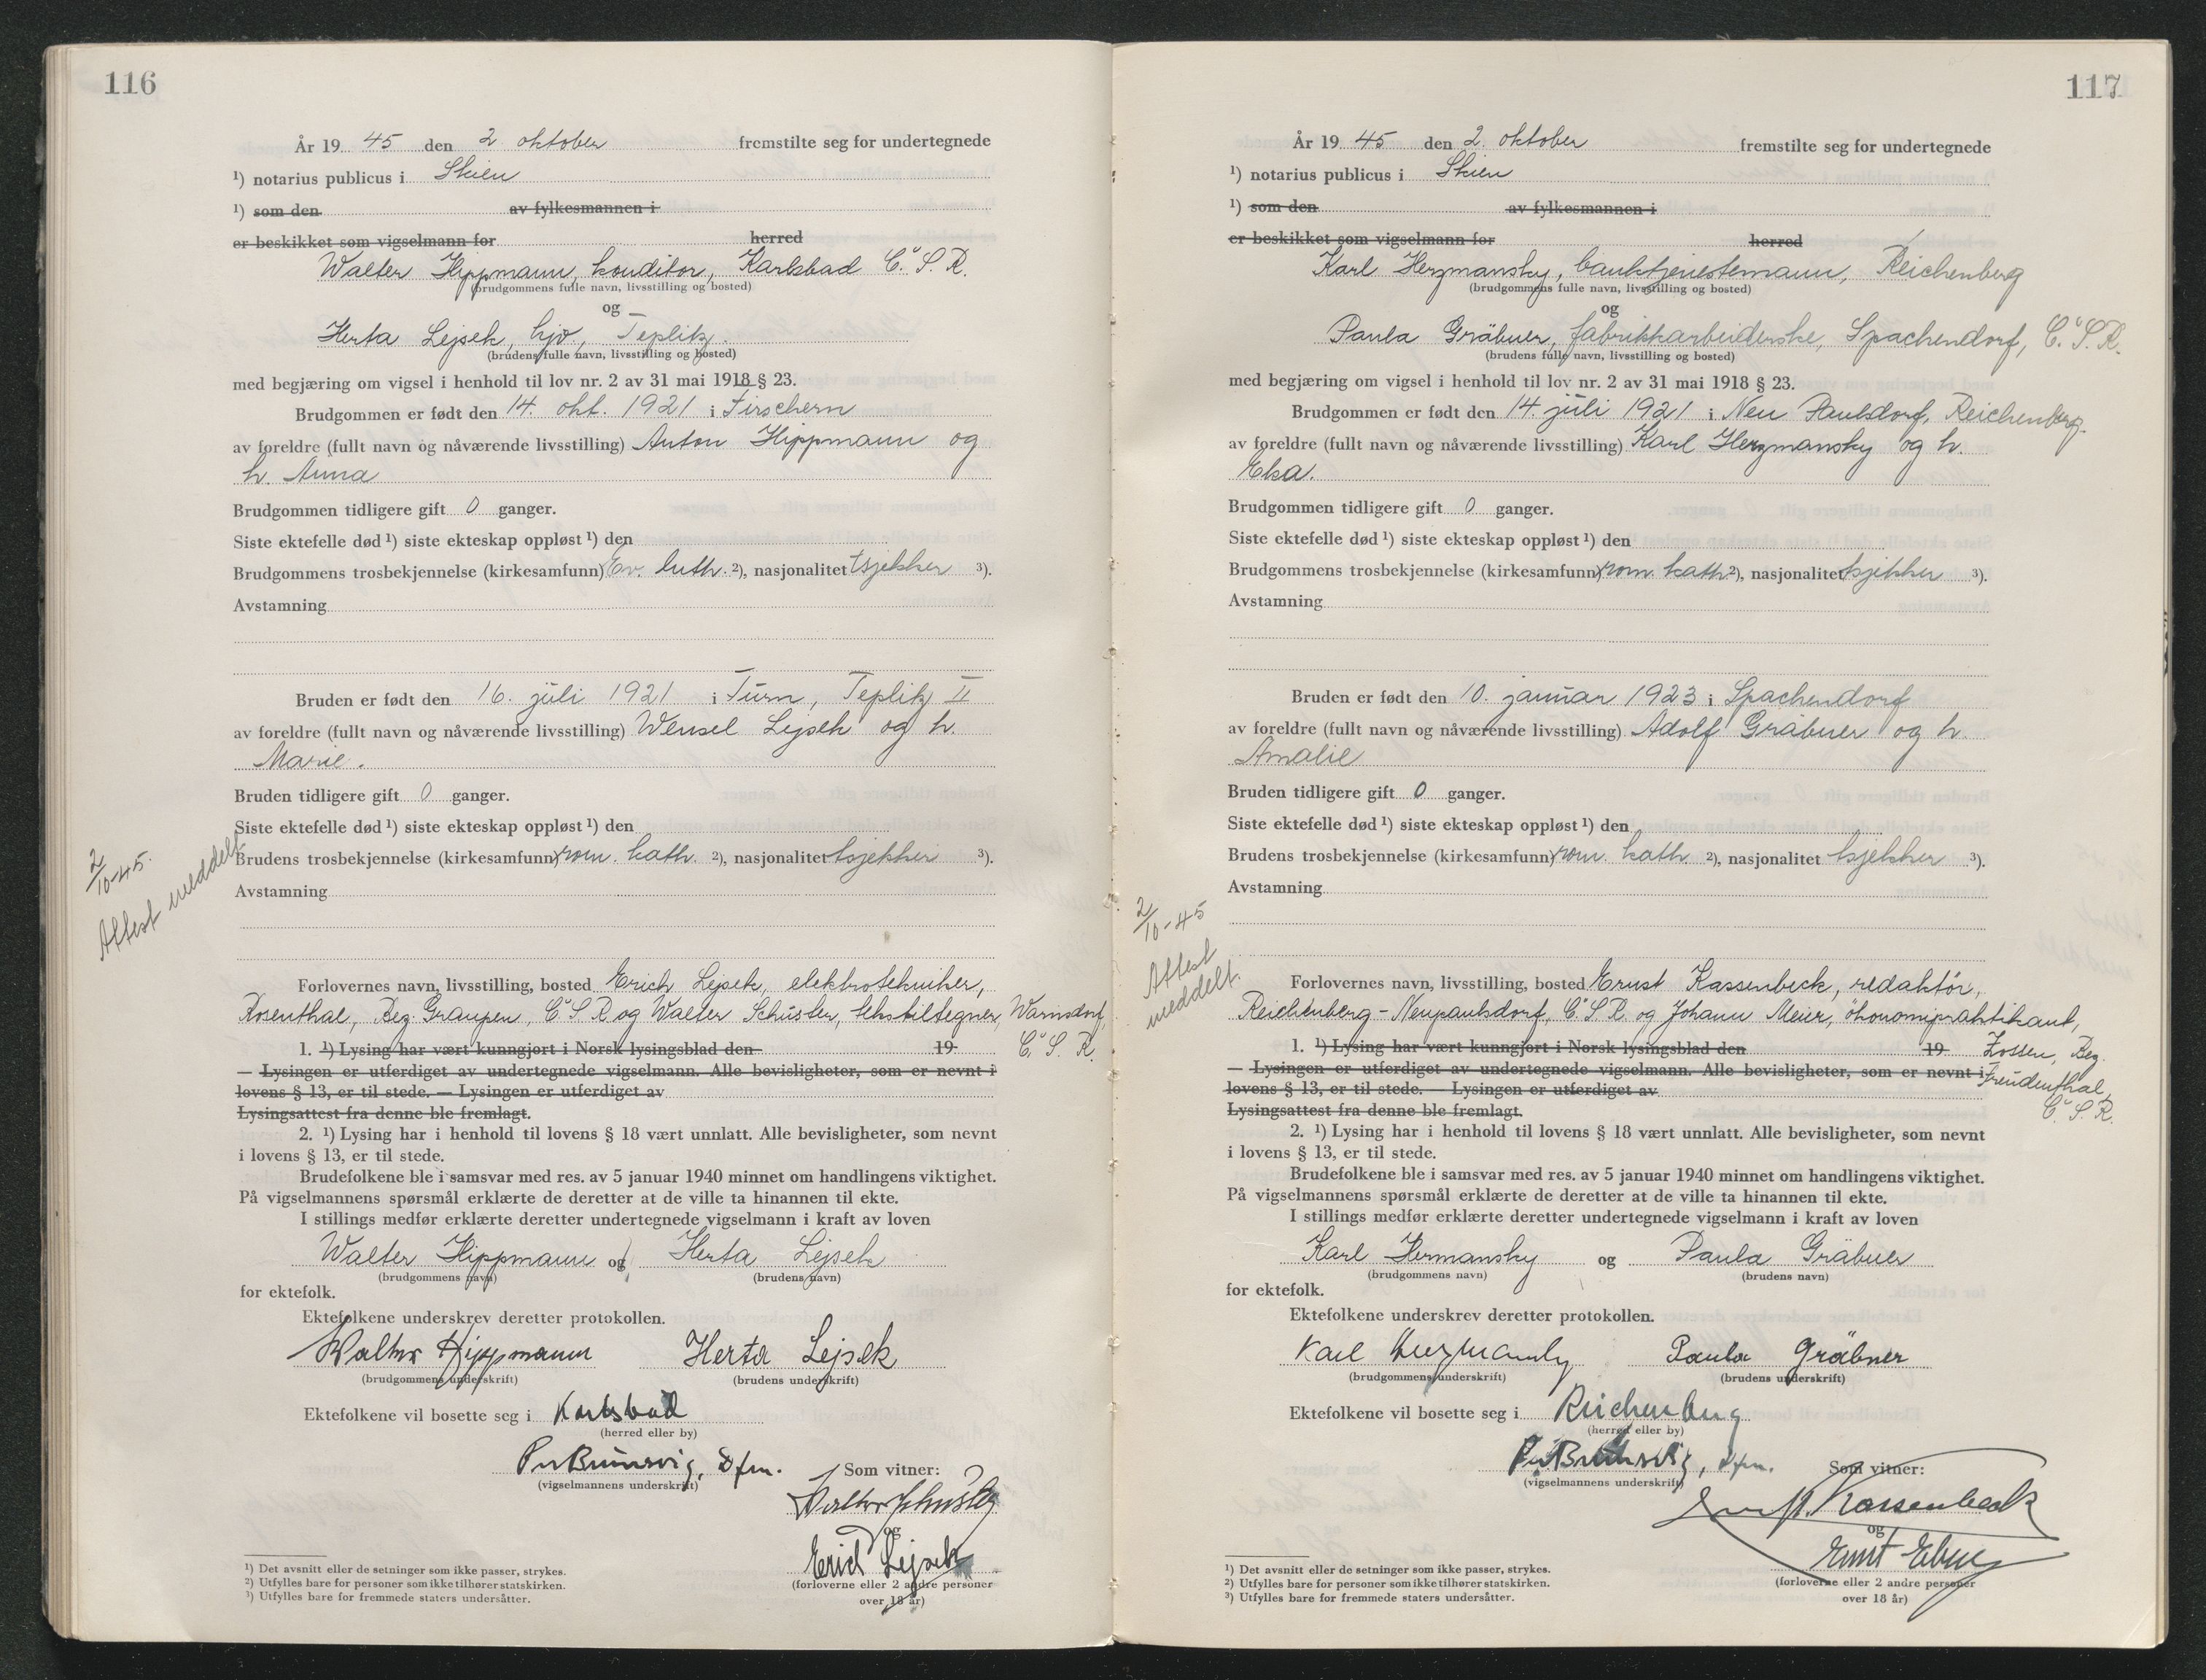 116
År 19 45 den 2 oktober fremstilte seg for undertegnede
¹) notarius publicus i Skien
¹) som den av fylkesmannen i
er beskikket som vigselmann for herred
Walter Hippmann, konditor, Karlsbad Č.S.R.
(brudgommens fulle navn, livsstilling og bosted)
og
Herta Lejsek, hjv., Teplitz.
(brudens fulle navn, livsstilling og bosted)
med begjæring om vigsel i henhold til lov nr. 2 av 31 mai 1918 § 23.
Brudgommen er født den 14. okt. 1921 i Tirschern
av foreldre (fullt navn og nåværende livsstilling) Anton Hippmann og
h. Anna
Brudgommen tidligere gift 0 ganger.
Siste ektefelle død ¹) siste ekteskap oppløst ¹) den
Brudgommens trosbekjennelse (kirkesamfunn) Ev. luth. ²), nasjonalitet tsjekker ³).
Avstamning
Bruden er født den 16. juli 1921 i Turn, Teplitz II
av foreldre (fullt navn og nåværende livsstilling) Wensel Lejsek og h.
Marie.
Bruden tidligere gift 0 ganger.
Siste ektefelle død ¹) siste ekteskap oppløst ¹) den
Brudens trosbekjennelse (kirkesamfunn) rom. kath. ²), nasjonalitet tsjekker ³).
Avstamning
2/10-45.
Attest meddelt
Forlovernes navn, livsstilling, bosted Erich Lejsek, elektrotekniker,
Rosenthal, Beg. Graupen, Č.S.R og Walter Schuster, tekstiltegner, Warnsdorf,
Č.S.R.
1. ¹) Lysing har vært kunngjort i Norsk lysingsblad den 19
— Lysingen er utferdiget av undertegnede vigselmann. Alle bevisligheter, som er nevnt i
lovens § 13, er til stede. — Lysingen er utferdiget av
Lysingsattest fra denne ble fremlagt.
2. ¹) Lysing har i henhold til lovens § 18 vært unnlatt. Alle bevisligheter, som nevnt
i lovens § 13, er til stede.
Brudefolkene ble i samsvar med res. av 5 januar 1940 minnet om handlingens viktighet.
På vigselmannens spørsmål erklærte de deretter at de ville ta hinannen til ekte.
I stillings medfør erklærte deretter undertegnede vigselmann i kraft av loven
Walter Hippmann og Herta Lejsek
(brudgommens navn) (brudens navn)
for ektefolk.
Ektefolkene underskrev deretter protokollen.
Walter Hippmann Herta Lejsek
(brudgommens underskrift) (brudens underskrift)
Ektefolkene vil bosette seg i Karlsbad
(herred eller by)
Per Bunsvig, dfm.
(vigselmannens underskrift)
Som vitner:
Walter Schuster
og
Erich Lejsek
(forloverne eller 2 andre personer
over 18 år)
¹) Det avsnitt eller de setninger som ikke passer, strykes.
²) Utfylles bare for personer som ikke tilhører statskirken.
³) Utfylles bare for fremmede staters undersåtter.
117
År 19 45 den 2. oktober fremstilte seg for undertegnede
¹) notarius publicus i Skien
¹) som den av fylkesmannen i
er beskikket som vigselmann for herred
Karl Herzmansky, banktjenestemann, Reichenberg
(brudgommens fulle navn, livsstilling og bosted)
og
Paula Gräbner, fabrikkarbeiderske, Spachendorf, Č.S.R.
(brudens fulle navn, livsstilling og bosted)
med begjæring om vigsel i henhold til lov nr. 2 av 31 mai 1918 § 23.
Brudgommen er født den 14. juli 1921 i Neu Paulsdorf, Reichenberg.
av foreldre (fullt navn og nåværende livsstilling) Karl Herzmansky og h.
Elsa.
Brudgommen tidligere gift 0 ganger.
Siste ektefelle død ¹) siste ekteskap oppløst ¹) den
Brudgommens trosbekjennelse (kirkesamfunn) rom. kath. ²), nasjonalitet tsjekker ³).
Avstamning
Bruden er født den 10. januar 1923 i Spachendorf
av foreldre (fullt navn og nåværende livsstilling) Adolf Gräbner og h.
Amalie
Bruden tidligere gift 0 ganger.
Siste ektefelle død ¹) siste ekteskap oppløst ¹) den
Brudens trosbekjennelse (kirkesamfunn) rom. kath ²), nasjonalitet tsjekker ³).
Avstamning
2/10-45
Attest
meddelt.
Forlovernes navn, livsstilling, bosted Ernst Kassenbeck, redaktör,
Reichenberg-Neupaulsdorf, Č.S.R. og Johann Meier, ökonomipraktikant,
Zossen, Beg.
Freudenthal,
Č.S.R.
1. ¹) Lysing har vært kunngjort i Norsk lysingsblad den 19
— Lysingen er utferdiget av undertegnede vigselmann. Alle bevisligheter, som er nevnt i
lovens § 13, er til stede. — Lysingen er utferdiget av
Lysingsattest fra denne ble fremlagt.
2. ¹) Lysing har i henhold til lovens § 18 vært unnlatt. Alle bevisligheter, som nevnt
i lovens § 13, er til stede.
Brudefolkene ble i samsvar med res. av 5 januar 1940 minnet om handlingens viktighet.
På vigselmannens spørsmål erklærte de deretter at de ville ta hinannen til ekte.
I stillings medfør erklærte deretter undertegnede vigselmann i kraft av loven
Karl Hermansky og Paula Gräbner
(brudgommens navn) (brudens navn)
for ektefolk.
Ektefolkene underskrev deretter protokollen.
Karl Herzmansky Paula Gräbner
(brudgommens underskrift) (brudens underskrift)
Ektefolkene vil bosette seg i Reichenberg
(herred eller by)
Per Bunsvig, dfm.
(vigselmannens underskrift)
Som vitner:
Ernst Kassenbeck
og
Ernst
(forloverne eller 2 andre personer
over 18 år)
¹) Det avsnitt eller de setninger som ikke passer, strykes.
²) Utfylles bare for personer som ikke tilhører statskirken.
³) Utfylles bare for fremmede staters undersåtter.